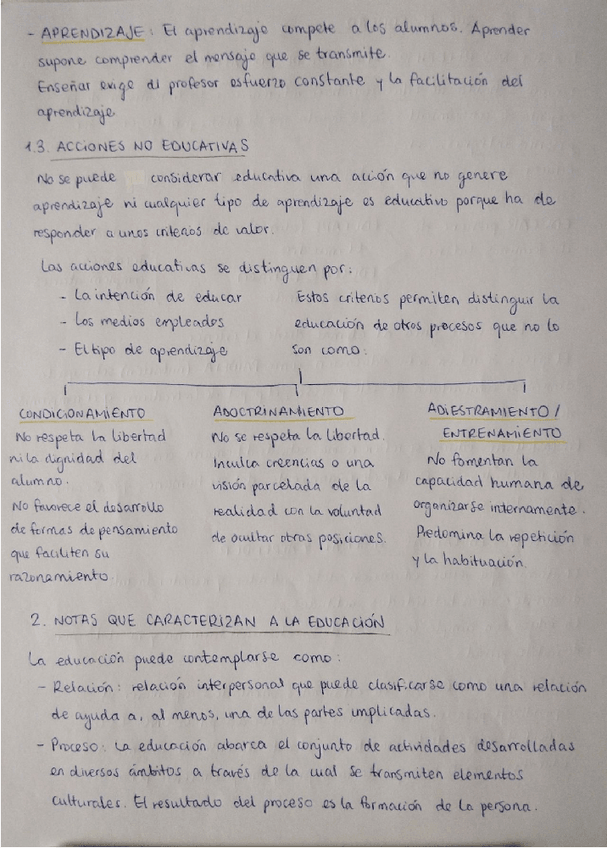 - APRENDIZAJE: El aprendizaje compete a los alumnos. Aprender
supone comprender el mensaje que se transmite.
Enseñar exige al profesor esfuerzo constante y la facilitación del
aprendizaje.
1.3. ACCIONES NO EDUCATIVAS
No se puede considerar educativa una acción que no genere
aprendizaje ni cualquier tipo de aprendizaje es educativo porque ha de
responder a unos criterios de valor.
Las acciones educativas se distinguen por:
- La intención de educar
- Los medios empleados
- El tipo de aprendizaje
Estos criterios permiten distinguir la
educación de otros procesos que no lo
son como:
CONDICIONAMIENTO
No respeta la libertad
ni la dignidad del
alumno.
No favorece el desarrollo
de formas de pensamiento
que faciliten su
razonamiento.
ADOCTRINAMIENTO
No se respeta la libertad.
Inculca creencias o una
visión parcelada de la
realidad con la voluntad
de ocultar otras posiciones.
ADIESTRAMIENTO /
ENTRENAMIENTO
No fomentan la
capacidad humana de
organizarse internamente.
Predomina la repetición
y la habituación.
2. NOTAS QUE CARACTERIZAN A LA EDUCACIÓN
La educación puede contemplarse como:
- Relación: relación interpersonal que puede clasificarse como una relación
de ayuda a, al menos, una de las partes implicadas.
- Proceso: La educación abarca el conjunto de actividades desarrolladas
en diversos ámbitos a través de la cual se transmiten elementos
culturales. El resultado del proceso es la formación de la persona.